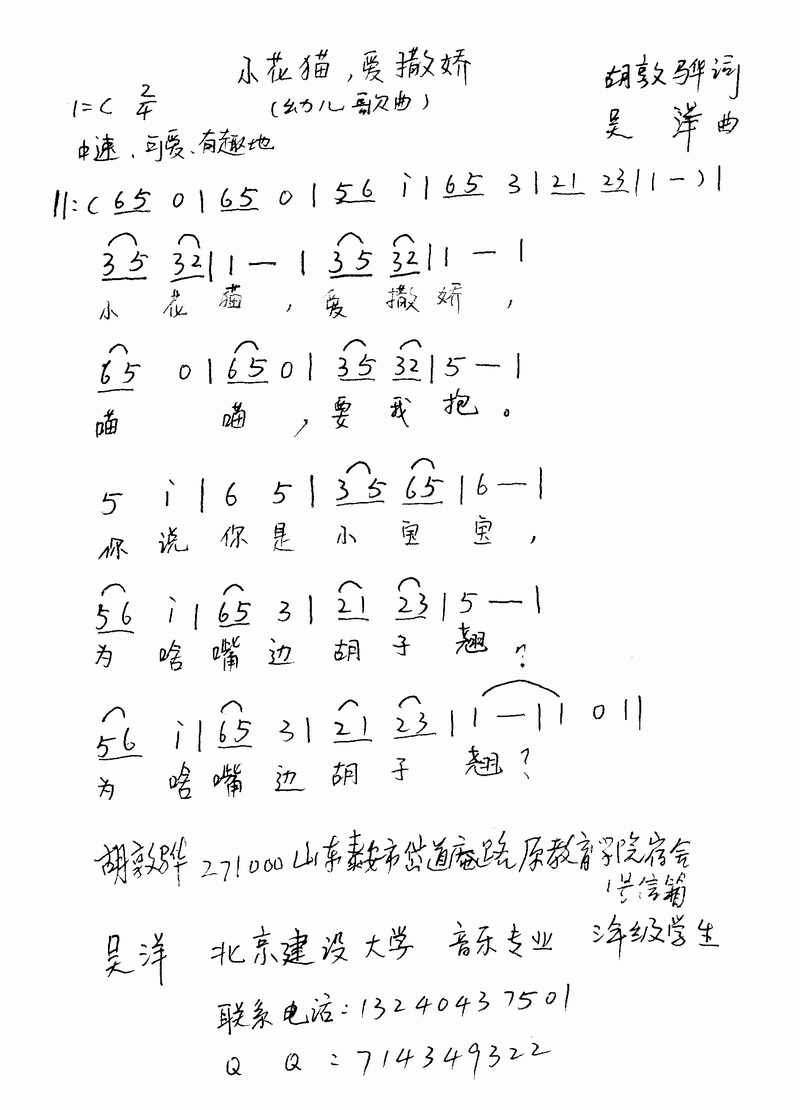 小花猫,爱撒娇
1=C 2/4 (幼儿歌曲) 胡敦骅词
中速、可爱、有趣地 吴 洋曲
||:( 65 0 | 65 0 | 56 i | 65 3 | 21 23 | 1 - ) |
35 32 | 1 — | 35 32 | 1 — |
小 花 猫 , 爱 撒 娇 ,
65 0 | 65 0 | 35 32 | 5 — |
喵 喵 , 要 我 抱 。
5 i | 6 5 | 35 65 | 6 — |
你 说 你 是 小 宝 宝 ,
56 i | 65 3 | 21 23 | 5 — |
为 啥 嘴 边 胡 子 翘 ?
56 i | 65 3 | 21 23 | 1 — | 1 0 ||
为 啥 嘴 边 胡 子 翘 ?
胡敦骅 271000 山东泰安市岱道庵路原教育学院宿舍
1号信箱
吴洋 北京建设大学 音乐专业 年级学生
联系电话:13240437501
Q Q :714349322